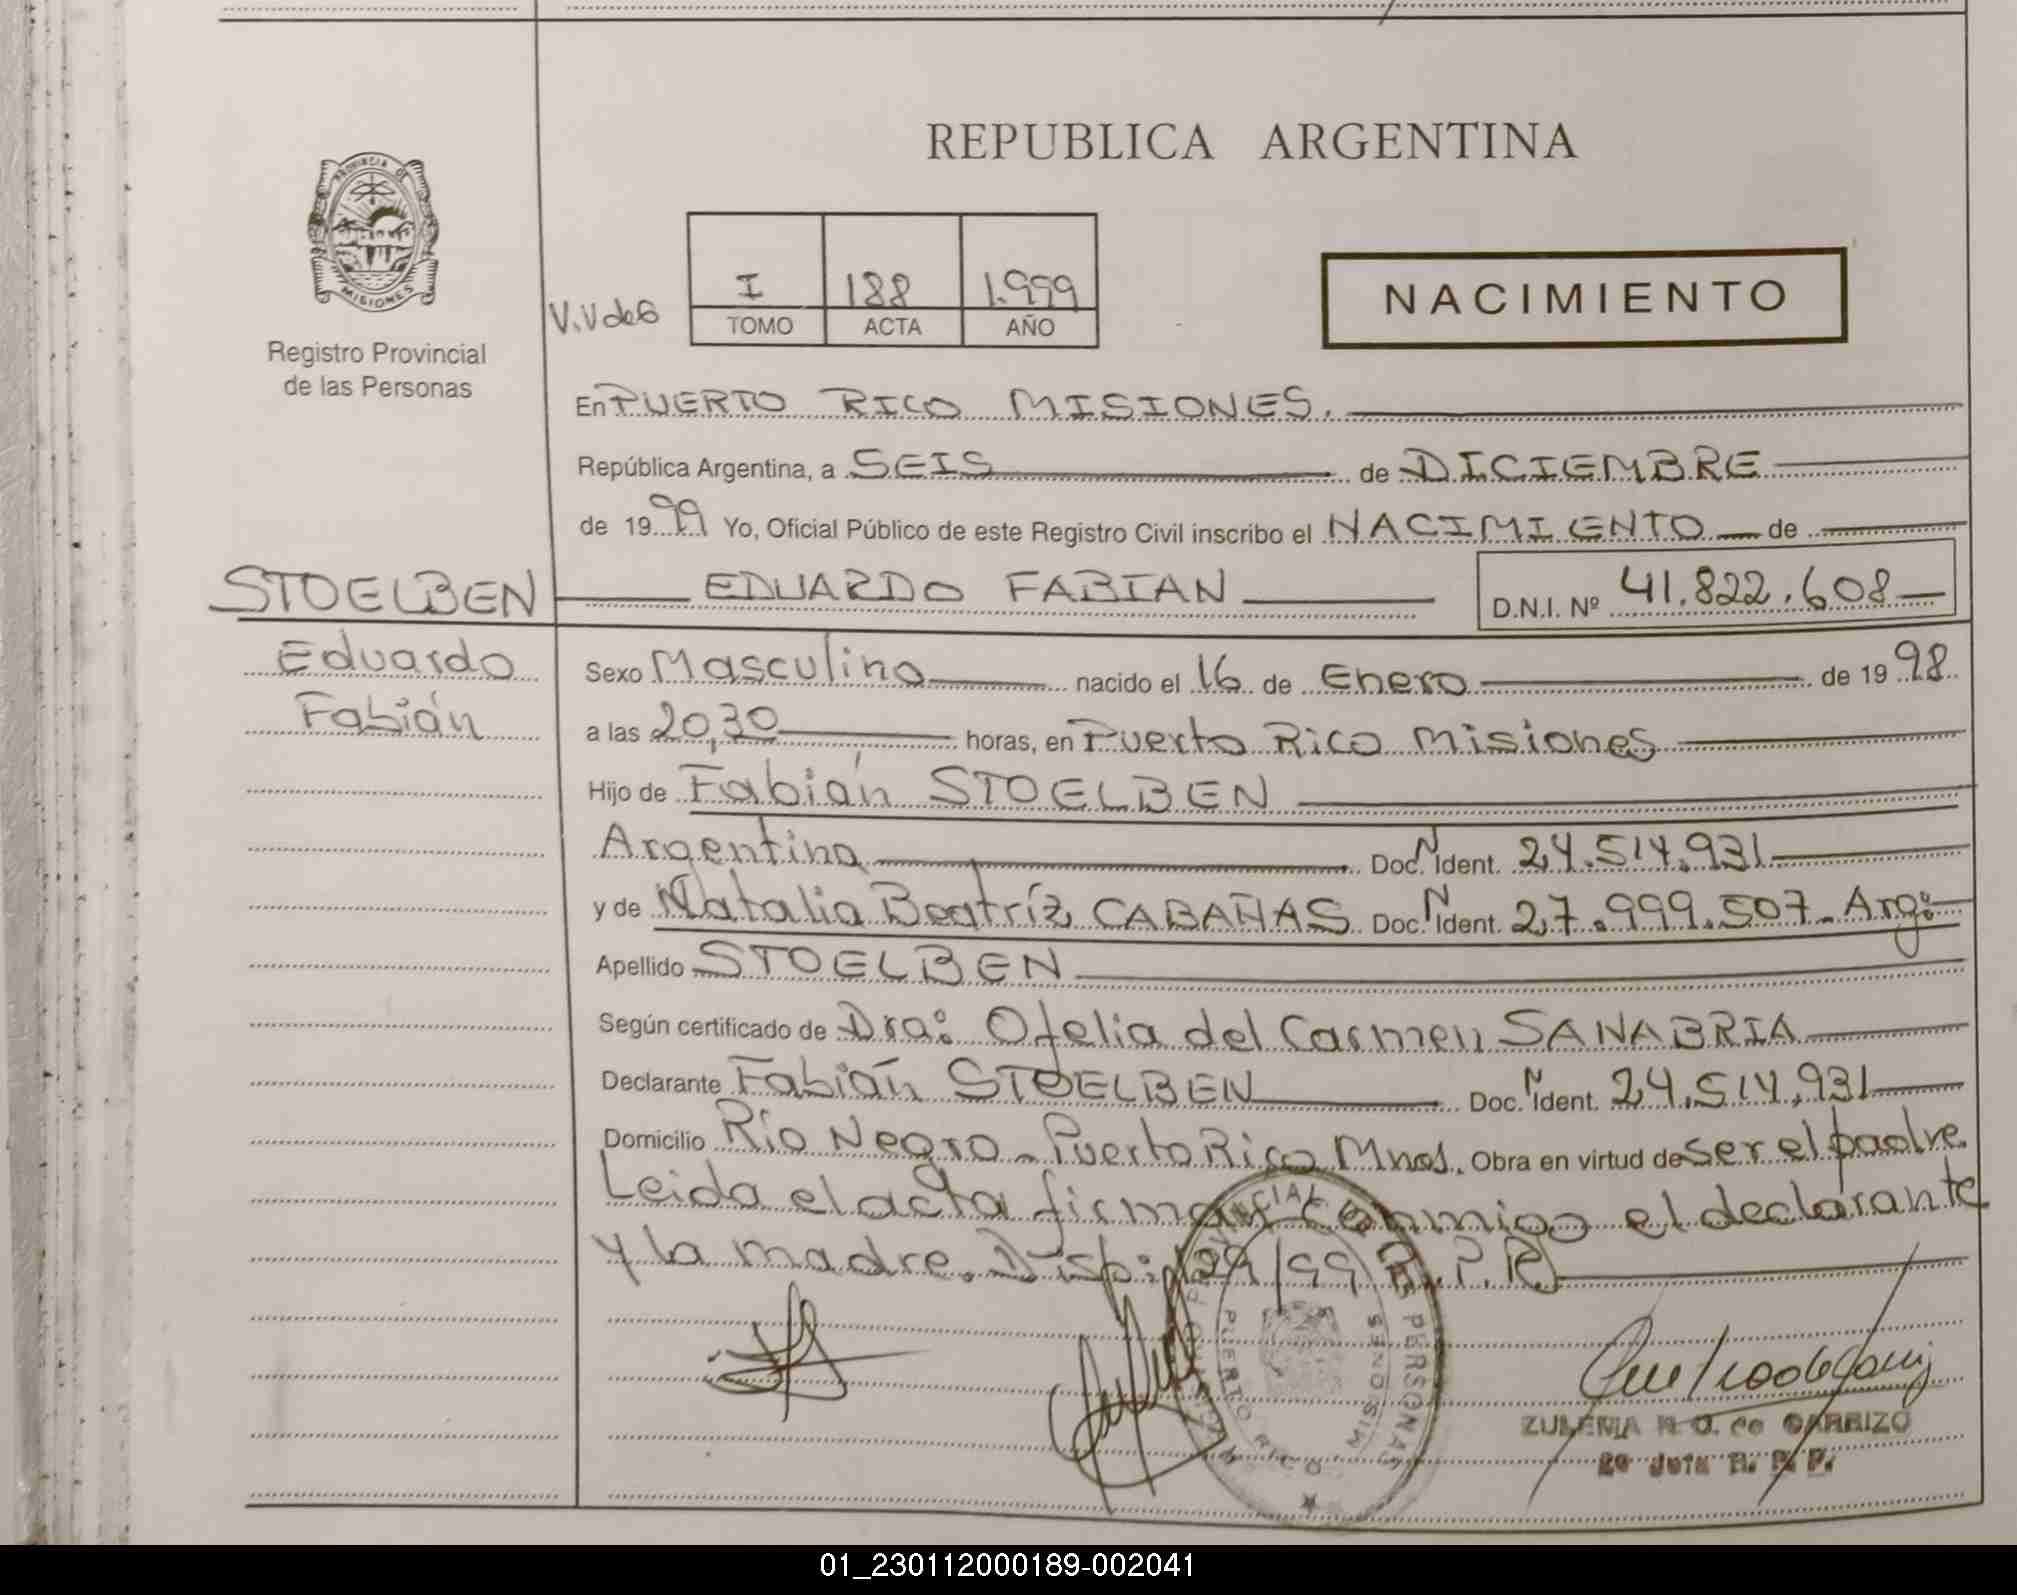 REPUBLICA ARGENTINA
PROVINCIA DE
MISIONES
Registro Provincial
de las Personas
V.V de G
I 188 1.999
TOMO ACTA AÑO
NACIMIENTO
En PUERTO RICO MISIONES.
República Argentina, a SEIS de DICIEMBRE
de 1999 Yo, Oficial Público de este Registro Civil inscribo el NACIMIENTO de
STOELBEN EDUARDO FABIAN D.N.I. Nº 41.822.608
Eduardo
Fabián
Sexo Masculino nacido el 16 de Enero de 1998
a las 20,30 horas, en Puerto Rico Misiones
Hijo de Fabián STOELBEN
Argentino Doc. N Ident. 24.514.931
y de Natalia Beatríz CABAÑAS Doc. N Ident. 27.999.507- Arg:
Apellido STOELBEN
Según certificado de Dra: Ofelia del Carmen SANABRIA
Declarante Fabián STOELBEN Doc. N Ident. 24.514.931
Domicilio Río Negro - Puerto Rico Mnes. Obra en virtud de ser el padre.
Leida el acta firman conmigo el declarante
y la madre. Disp: 29/99 R.P.R.
PROVINCIAL DE PERSONAS
PUERTO RICO MISIONES
ZULEMA N. O. de CARRIZO
01_230112000189-002041